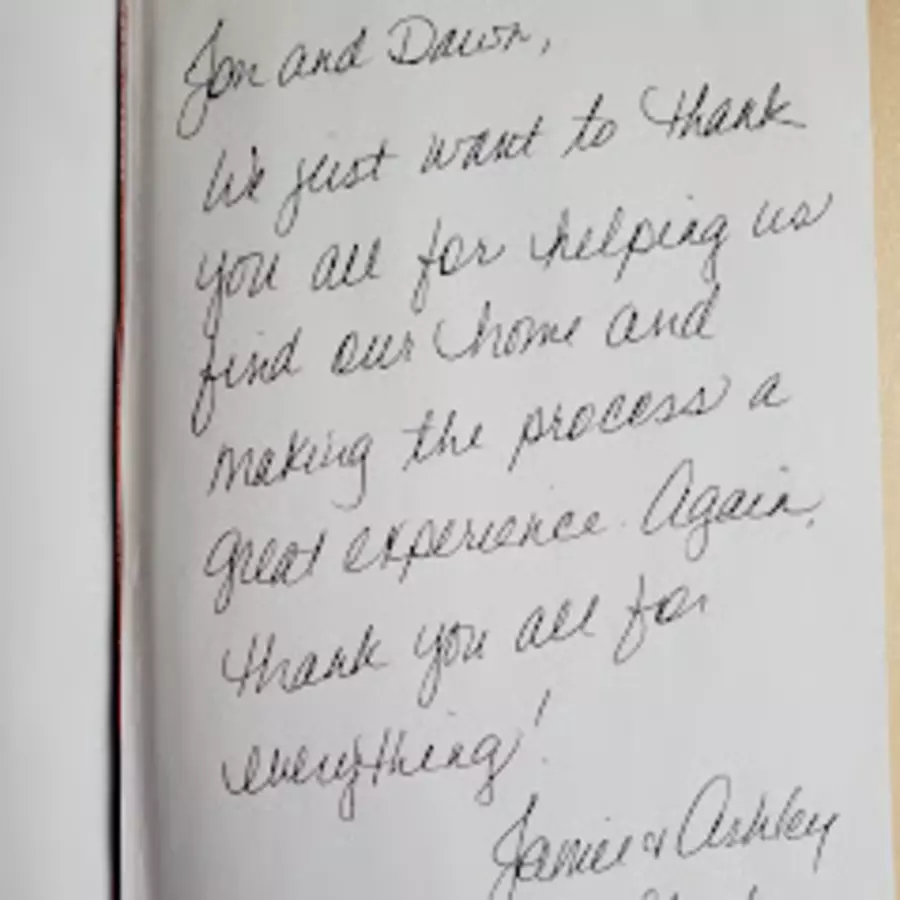 Jon and Dawn,
We just want to thank
you all for helping us
find our home and
making the process a
great experience. Again,
thank you all for
everything!
Jamie & Ashley